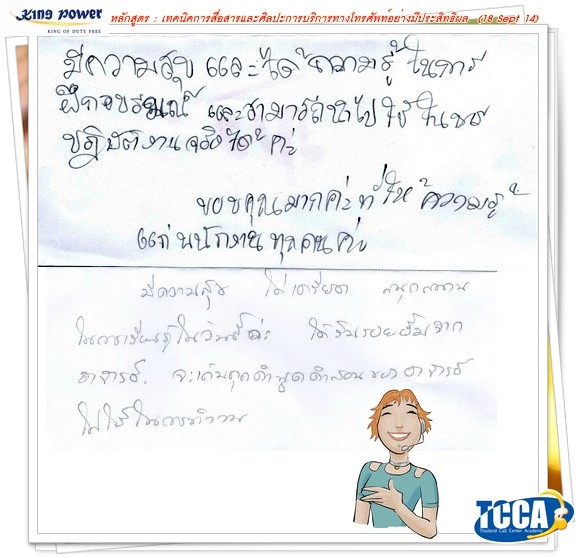 KING POWER
KING OF DUTY FREE
หลักสูตร : เทคนิคการสื่อสารและศิลปะการบริการทางโทรศัพท์อย่างมีประสิทธิผล (18 Sept 14)
มีความสุข และได้ความรู้ ในการ
ฝึกอบรม และสามารถนำไปใช้ใน
ปฏิบัติงานจริงได้ค่ะ
ขอบคุณมากค่ะที่ให้ความรู้
แก่พนักงานทุกคนค่ะ
มีความสุข ไม่เครียด สนุกสนาน
ในการเรียนรู้ในวันนี้ค่ะ ได้รับรอยยิ้มจาก
อาจารย์. จะเก็บทุกคำพูดคำสอนของอาจารย์
ไปใช้ในการทำงาน
TCCA
Thailand Call Center Academy